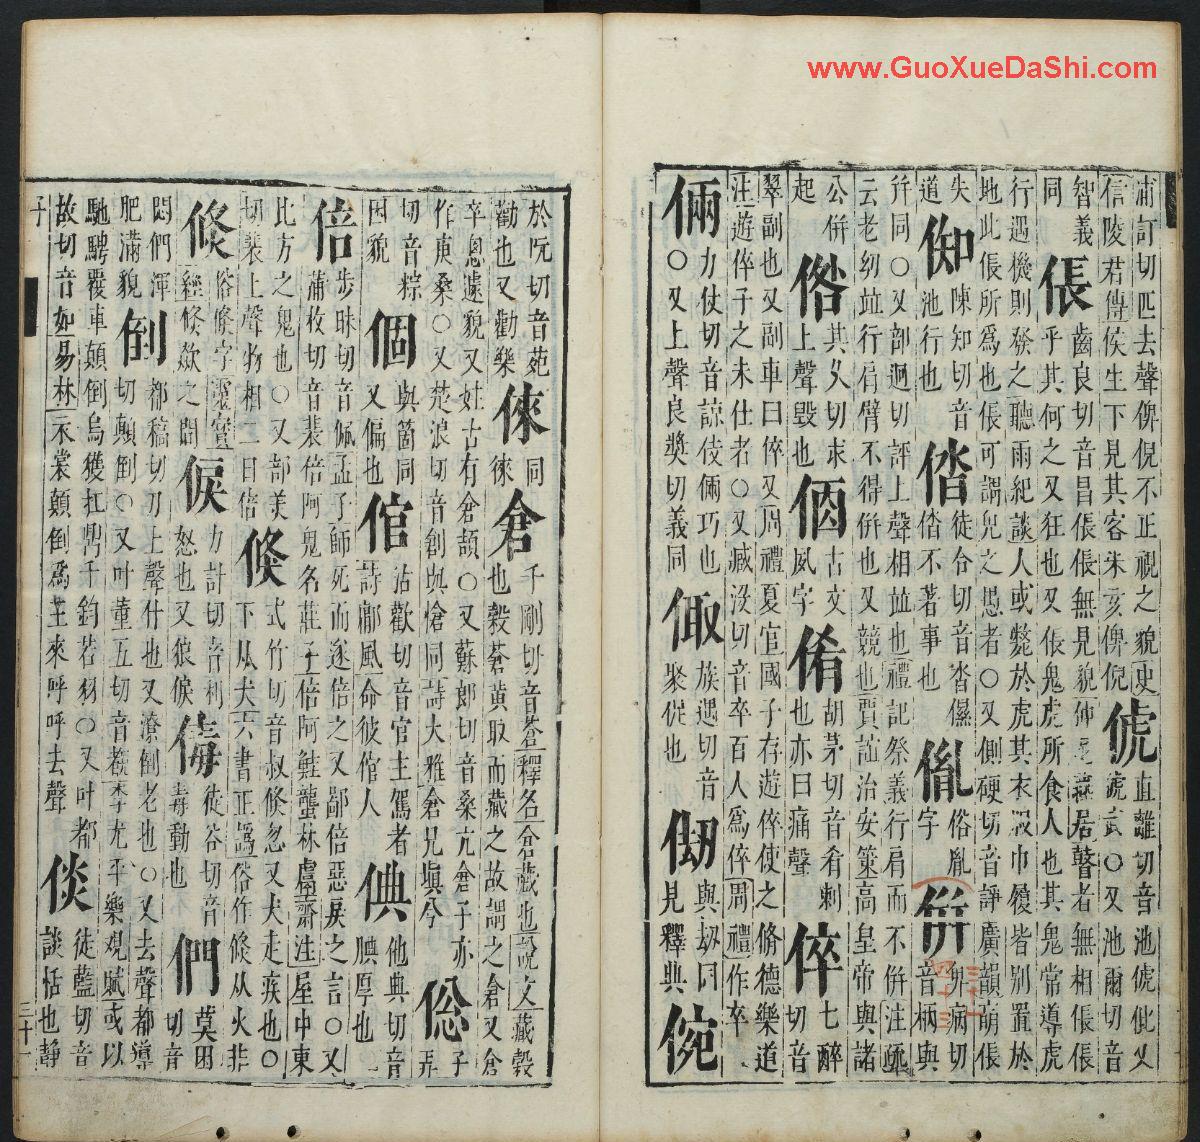 www.GuoXueDaShi.com
甫訂切匹去聲俾倪不正視之貌史
信陵君傳侯生下見其客朱亥俾倪
俿
直離切音池俿傂又
虒○又池爾切音
智義
同
倀
齒良切音昌倀倀無見貌瞽者無相倀倀
乎其何之又狂也又倀鬼虎所食人也其鬼常導虎
行遇機則發之聽雨紀談人或斃於虎其衣服巾履皆别置於
地此倀所爲也倀可謂鬼之愚者○又側硬切音諍廣韻萌倀
失
道
倁
陳知切音
池行也
㑥
徒合切音沓儑
㑥不著事也
俗胤
字
倂
卑病切
音柄與
竝同○又部迥切評上聲相竝也禮記祭義行肩而不倂注疏
云老幼竝行肩臂不得倂也又競也賈誼治安策高皇帝與諸
公倂
起
倃
其久切求
上聲毁也
古文
夙字
倄
胡茅切音肴刺
也亦曰痛聲
倅
七醉
切音
翠副也又副車曰倅又周禮夏官國子存遊倅使之脩德樂道
注遊倅子之未仕者○又臧没切音卒百人爲倅周禮作卒
倆
力仗切音諒伎倆巧也
○又上聲良奬切義同
族遇切音
聚從也
與刼同
見釋典
倇
於阮切音苑
勸也又勸樂
倈
同
徠
倉
千剛切音蒼釋名倉藏也說文藏穀
也穀蒼黄取而藏之故謂之倉又倉
卒悤遽貌又姓古有倉頡○又蘇郎切音桑亢倉子亦
作庚桑○又楚浪切音創與愴同詩大雅倉兄塡兮
子
弄
切音粽
困貌
個
與箇同
又偏也
倌
沽歡切音官主駕者
詩鄘風命彼倌人
倎
他典切音
腆厚也
倍
步昧切音佩孟子師死而遂倍之又鄙倍惡戾之言○又
蒲枚切音裴倍阿鬼名莊子倍阿鮭蠪林鬳齋注屋中東
比方之鬼也○又部美
切裴上聲物相二曰倍
倏
式竹切音叔倏忽又犬走疾也○
下从犬六書正譌俗作倐从火非
倐
俗倏字靈寶
經倐歘之間
㑦
力計切音利
怒也又狼㑦
徒谷切音
毒動也
們
莫困
切音
悶們渾
肥滿貌
倒
都稿切刀上聲什也又潦倒老也○又去聲都導
切顛倒○又叶董五切音覩李尤平樂觀賦或以
馳騁覆車顛倒烏獲扛鼎千鈞若羽○又叶都
故切音妬易林衣裳顛倒爲王來呼呼去聲
倓
徒藍切音
談恬也靜
子
三十一